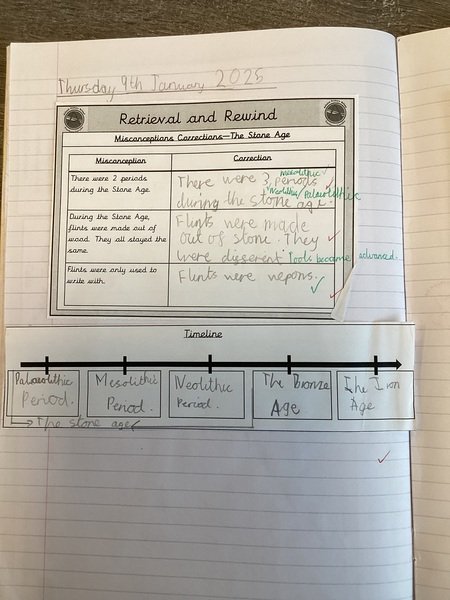 Thursday 9th January 2025
Retrieval and Rewind
Misconceptions Corrections—The Stone Age
Misconception
Correction
There were 2 periods
during the Stone Age.
There were 3 periods
mesolithic
Neolithic / Palaeolithic
during the stone age.
During the Stone Age,
flints were made out of
wood. They all stayed the
same.
Flints were made
out of stone. They
were different. Tools became advanced.
Flints were only used to
write with.
Flints were wepons.
Timeline
Palaeolithic
Period.
Mesolithic
Period.
Neolithic
Period.
The Bronze
Age
The Iron
Age
The stone age